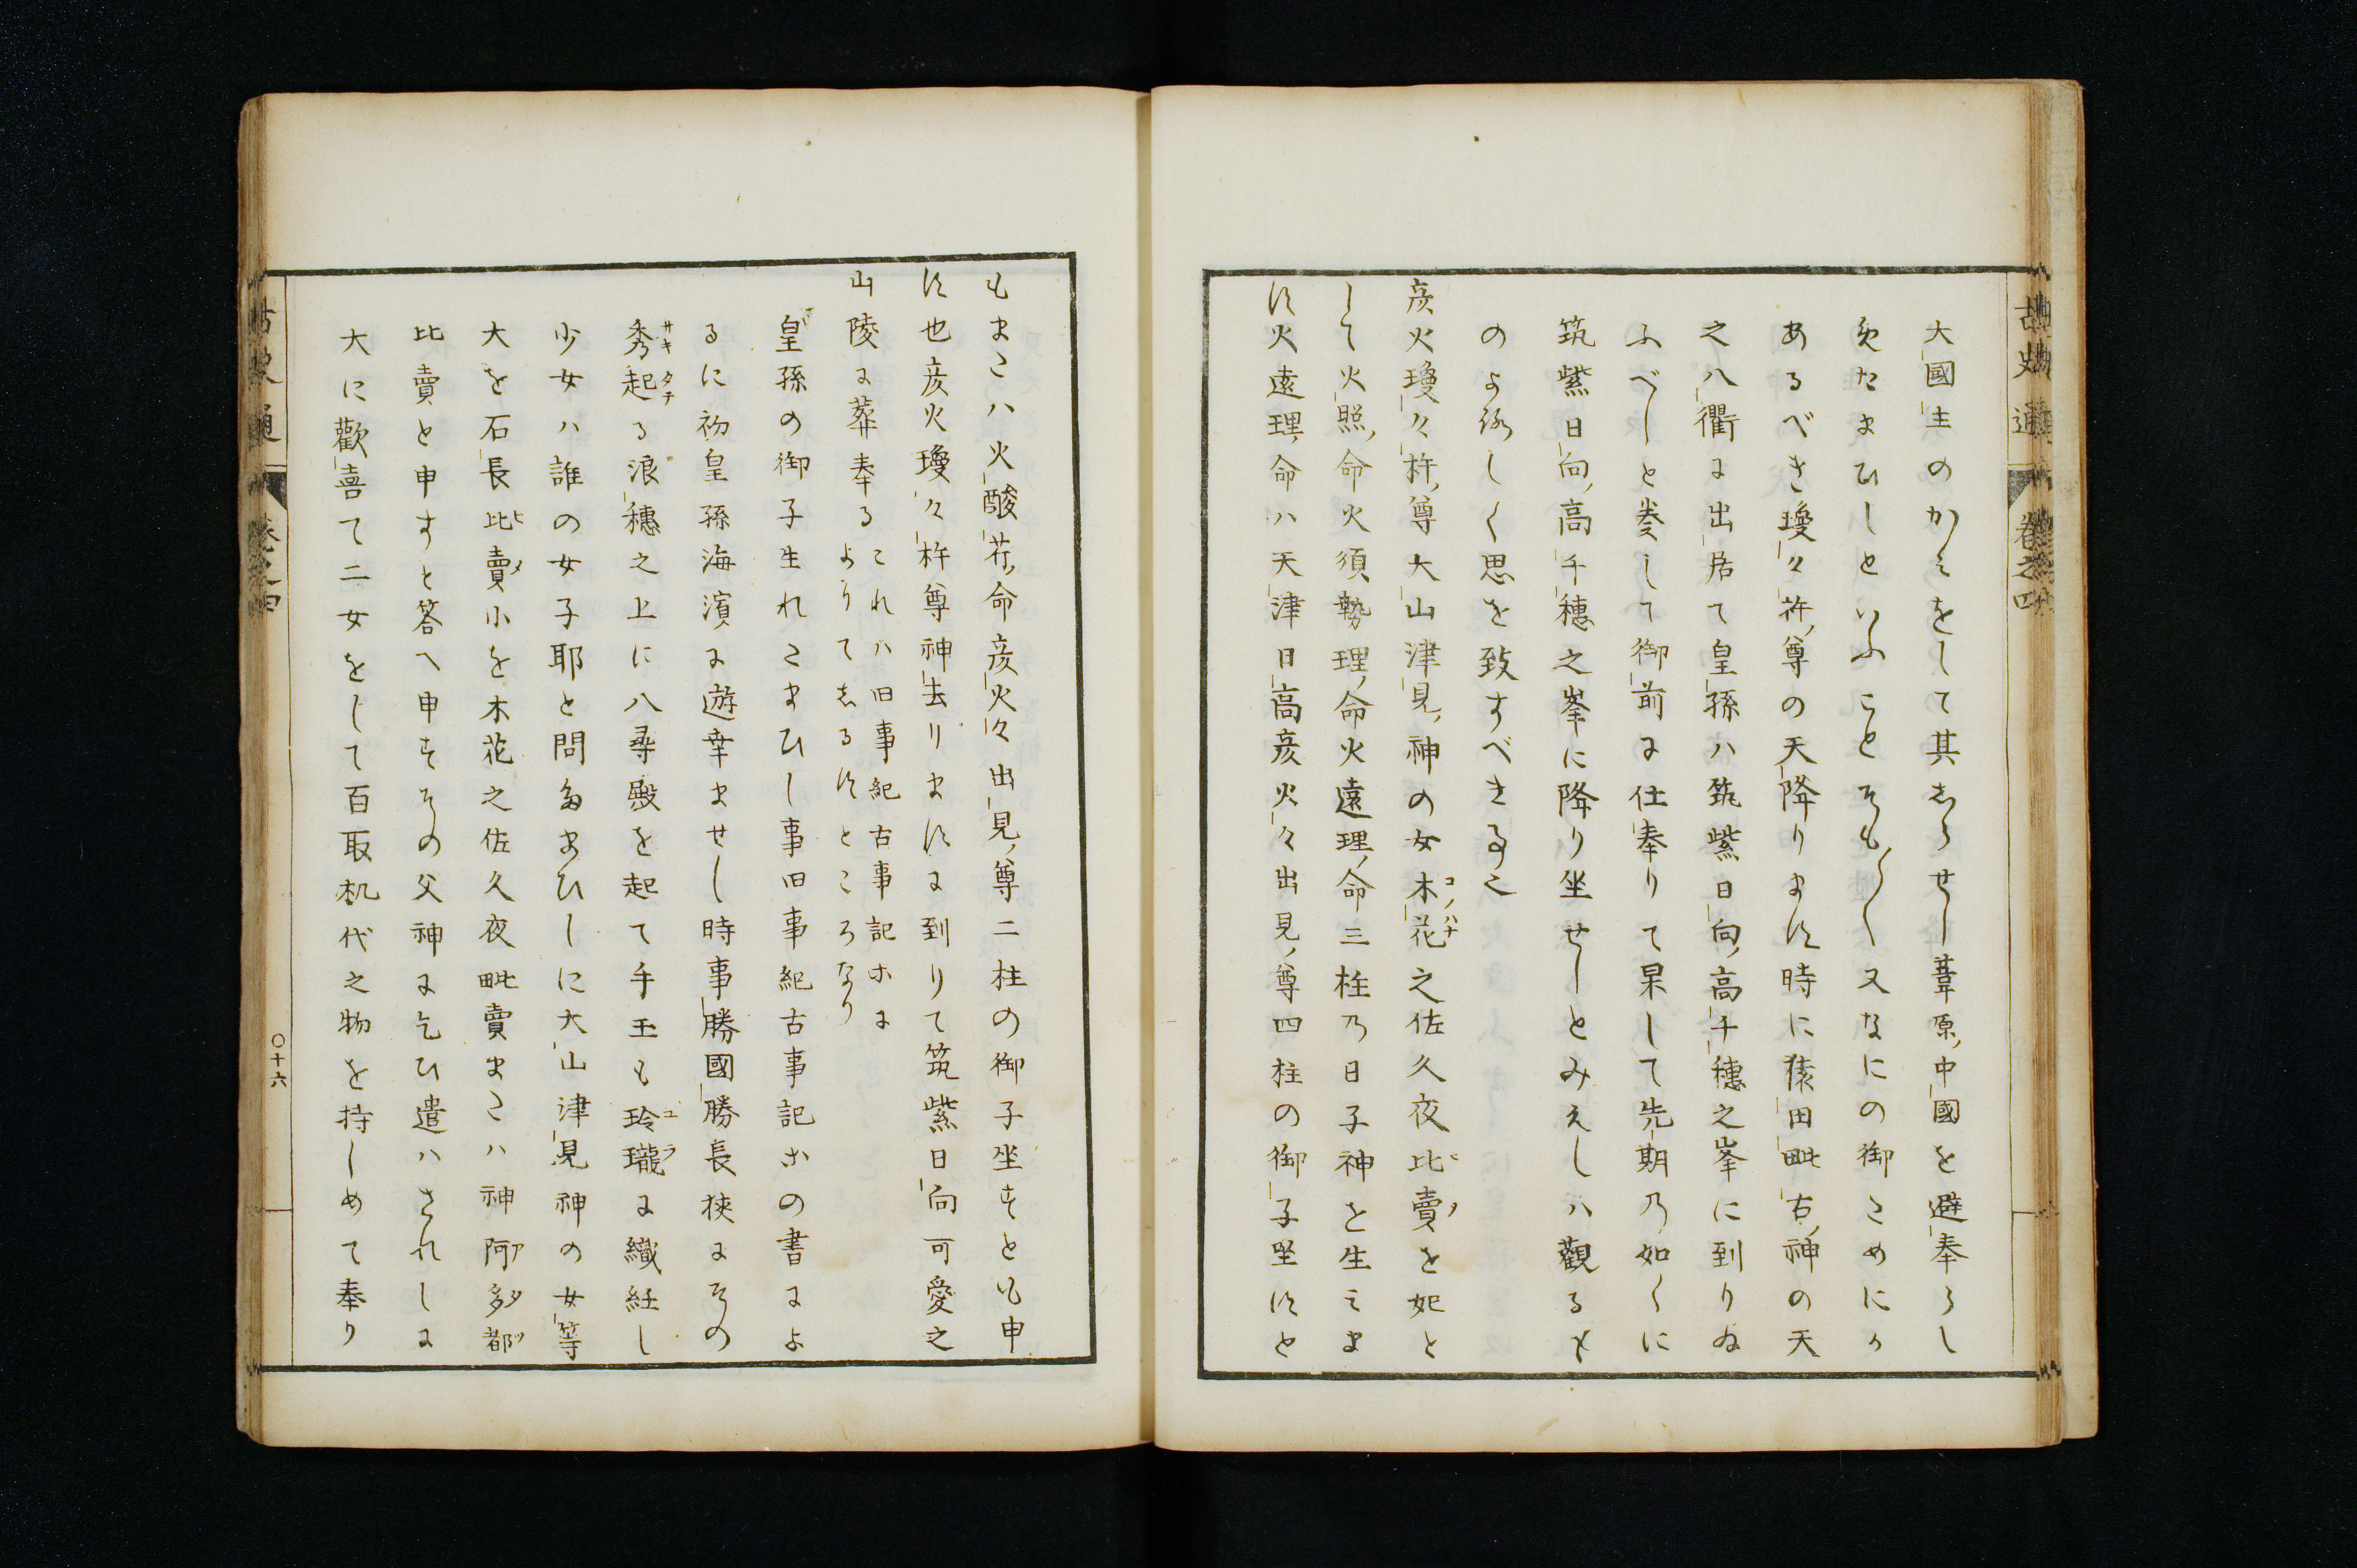 古史通
卷之四
大國主のかみをして其しらせし葦原中國を避奉らし
めたまひしといふことそも〳〵又なにの御ためにか
あるべき瓊々杵尊の天降ります時に猿田毗古神の天
之八衢に出居て皇孫ハ筑紫日向高千穗之峯に到りゐ
ふべしと發して御前に仕奉りて果して先期乃如くに
筑紫日向高千穗之峯に降り坐せしとみえしハ觀るも
のよろしく思を致すべき事也
彦火瓊々杵尊大山津見神の女木花之佐久夜比賣を妃と
コノハナ
ヒメ
して火照命火須勢理命火遠理命三柱乃日子神を生ミま
す火遠理命ハ天津日高彦火々出見尊四柱の御子坐すと
もまたハ火酸芹命彦火々出見尊二柱の御子坐すとも申
す也彦火瓊々杵尊神去りますに到りて筑紫日向可愛之
山陵に葬奉る
これハ旧事紀古事記等に
よりてしるすところなり
皇孫の御子生れたまひし事旧事紀古事記等の書によ
るに初皇孫海濱に遊幸ませし時事勝國勝長狹にその
秀起る浪穗之上に八尋殿を起て手玉も玲瓏に織經し
サキタチ
ユラ
少女ハ誰の女子耶と問たまひしに大山津見神の女等
大を石長比賣小を木花之佐久夜毗賣またハ神阿多都
ヒメ
アタツ
比賣と申すと答へ申すその父神に乞ひ遣ハされしに
大に歡喜て二女をして百取机代之物を持しめて奉り
古史通
卷之四
○十六